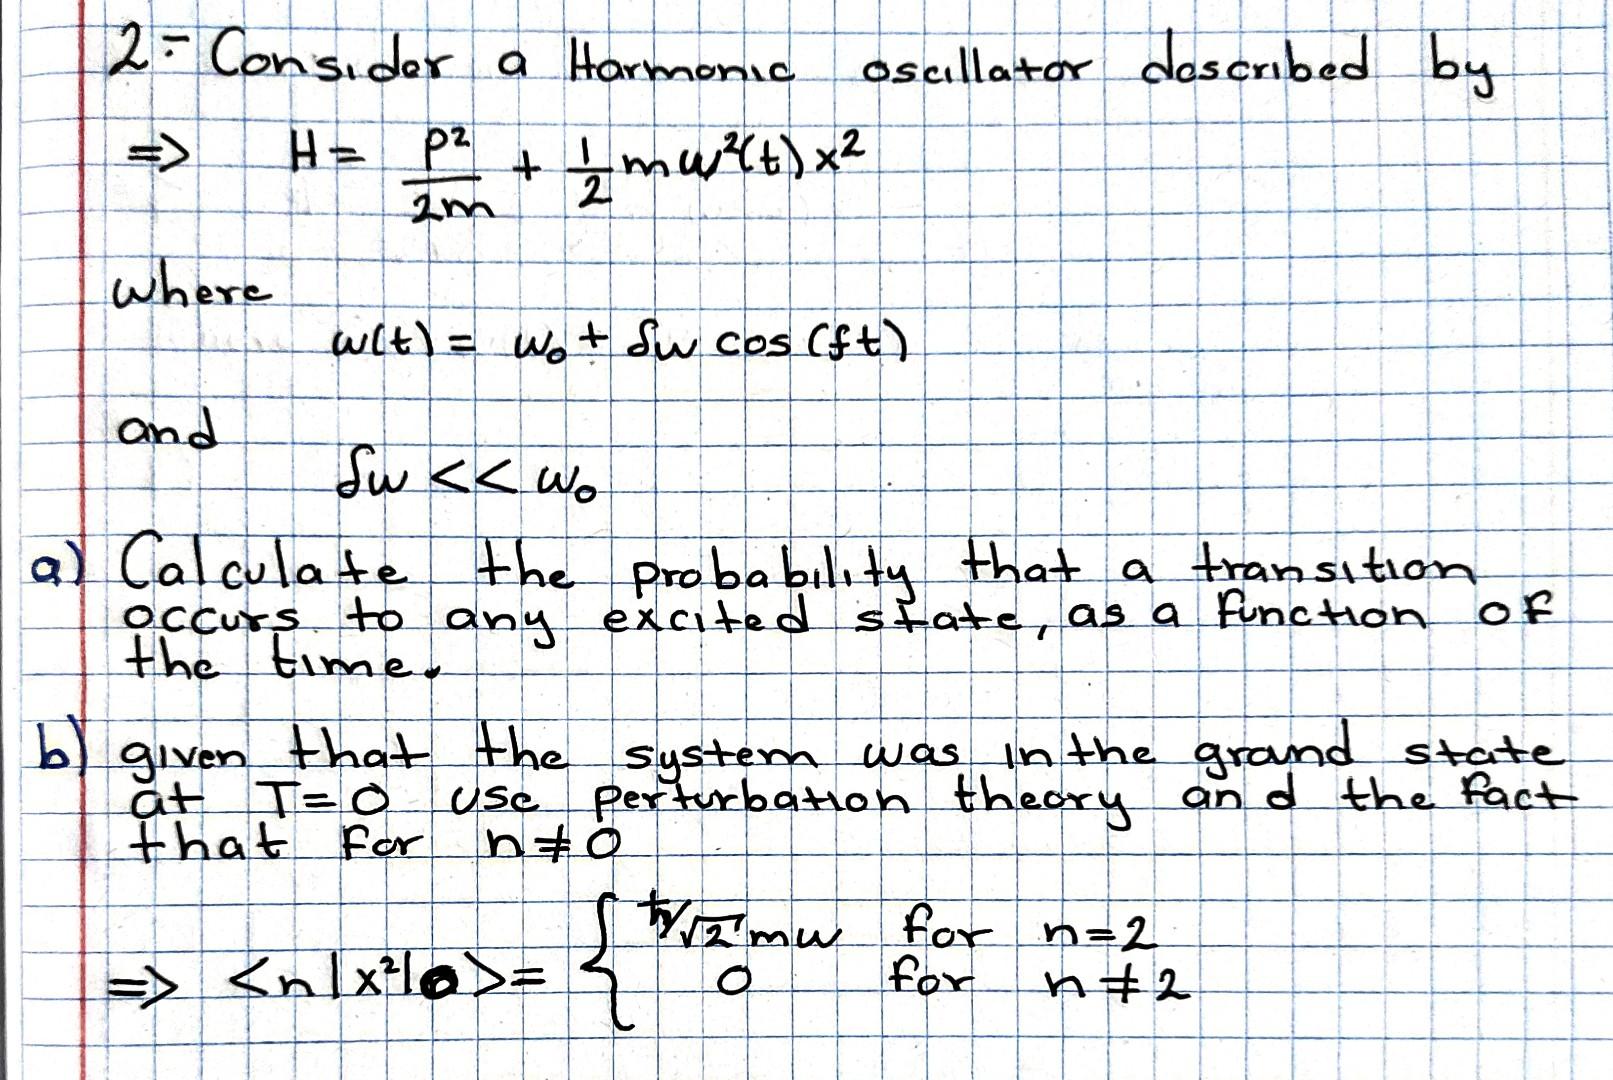 2- Consider a Harmonic oscillator described by
=> H = p²/2m + 1/2 mw²(t) x²
where
w(t) = w₀ + δw cos (ft)
and
δw << w₀
a) Calculate the probability that a transition
occurs to any excited state, as a function of
the time.
b) given that the system was in the grand state
at T=0 use perturbation theory and the fact
that for n≠0
=> <n|x²|0> = { ħ/√2 mw for n=2
0 for n≠2